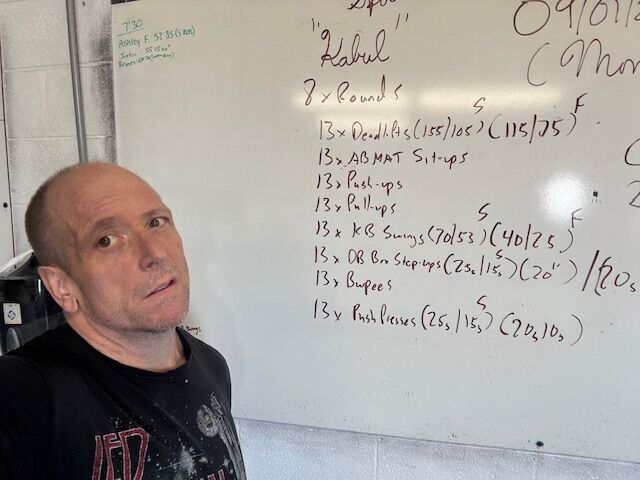 7:30
Ashley F. 52:85 (S
Justin
"Kabul"
09/01/
(Mon
8 x Rounds
S
F
13 x Deadlifts (155/105) (115/75)
13 x ABMAT Sit-ups
13 x Push-ups
13 x Pull-ups
S
F
13 x KB Swings (70/53) (40/25)
S
13 x DB Box Step-ups (25s/15s) (20") / (20s
13 x Bupees
S
13 x Push Presses (25s/15s) (20s/10s)
LED